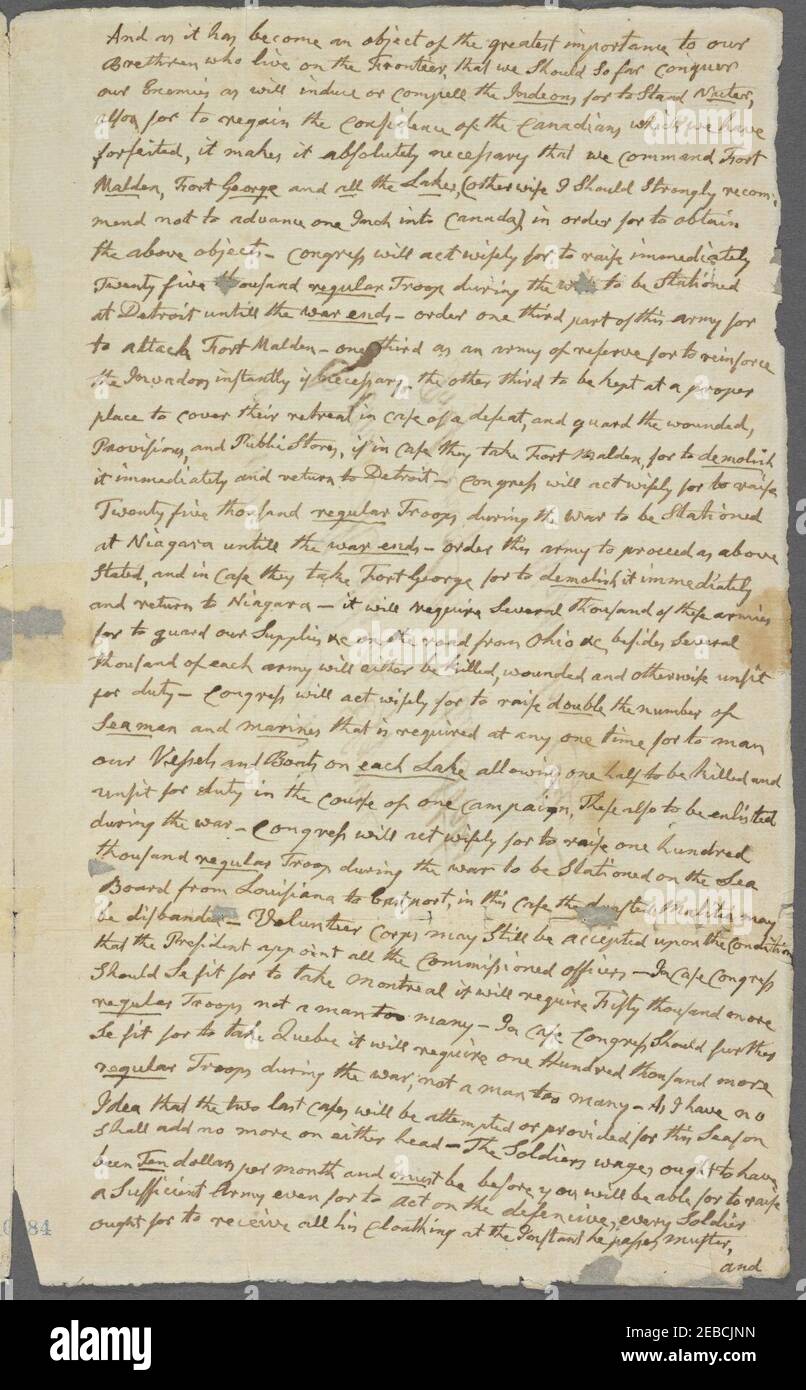 And as it has become an object of the greatest importance to our
Brethren who live on the Frontier, that we Should So far conquer
our Enemies as will induce or compell the Indeons for to Stand Nuter,
allso for to regain the confidence of the Canadians which we have
forfeited, it makes it absolutely necessary that we command Fort
Malden, Fort George and all the Lakes, (otherwise I Should Strongly recom-
mend not to advance one Inch into Canada) in order for to obtain
the above objects - Congress will act wisely for to raise immediately
Twenty five thousand regular Troops during the war to be Stationed
at Detroit untill the war ends - order one third part of this army for
to attack Fort Malden - one third as an army of reserve for to reinforce
the Invadors instantly if necessary, the other third to be kept at a proper
place to cover their retreat in case of a defeat, and guard the wounded,
Provisions, and Public Stores, if in case they take Fort Malden, for to demolish
it immediately and return to Detroit - Congress will act wisely for to raise
Twenty five thousand regular Troops during the War to be Stationed
at Niagara untill the war ends - order this army to proceed as above
Stated, and in case they take Fort George for to demolish it immediately
and return to Niagara - it will require Several thousand of these armies
for to guard our Supplies &c on the road from Ohio &c, besides Several
thousand of each army will either be killed, wounded and otherwise unfit
for duty - Congress will act wisely for to raise double the number of
Seamen and marines that is required at any one time for to man
our Vessels and Boats on each Lake allowing one half to be killed and
unfit for duty in the course of one campaign, These also to be enlisted
during the war - Congress will act wisely for to raise one hundred
thousand regular Troops during the war to be Stationed on the Sea
Board from Louisiana to Eastport, in this case the drafted Militia may
be disbanded - Volunteer Corps may Still be accepted upon the condition
that the President appoint all the Commissioned officers - In case Congress
Should Se fit for to take Montreal it will require Fifty thousand more
regular Troops not a man too many - In case Congress Should further
Se fit for to take Quebec it will require one Hundred thousand more
regular Troops during the war, not a man too many - As I have no
Idea that the two last cases will be attempted or provided for this Season
Shall add no more on either head - The Soldiers wages ought to have
been Ten dollars per month and must be before you will be able for to raise
a Sufficient Army even for to act on the defencive, every Soldier
ought for to receive all his Cloathing at the Instant he passes muster,
and
84
alamy
Image ID: 2EBCJNN
www.alamy.com